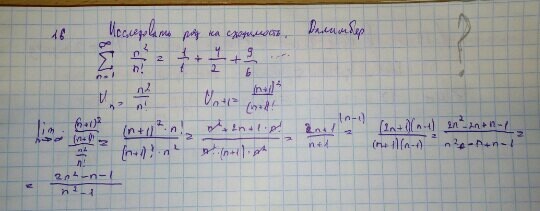 16 Исследовать ряд на сходимость. Даламбер ?
∞ ∑ n=1 n²/n! = 1/1 + 4/2 + 9/6 ....
Uₙ = n²/n! Uₙ₊₁ = (n+1)²/(n+1)!
lim n→∞ ((n+1)²/(n+1)!)/(n²/n!) = (n+1)²·n!/((n+1)!·n²) = (n²+2n+1·n!)/(n!·(n+1)·n²) = (2n+1)/(n+1) = (n-1) (2n+1)(n-1)/((n+1)(n-1)) = (2n²-2n+n-1)/(n²-n+n-1) =
= (2n²-n-1)/(n²-1)